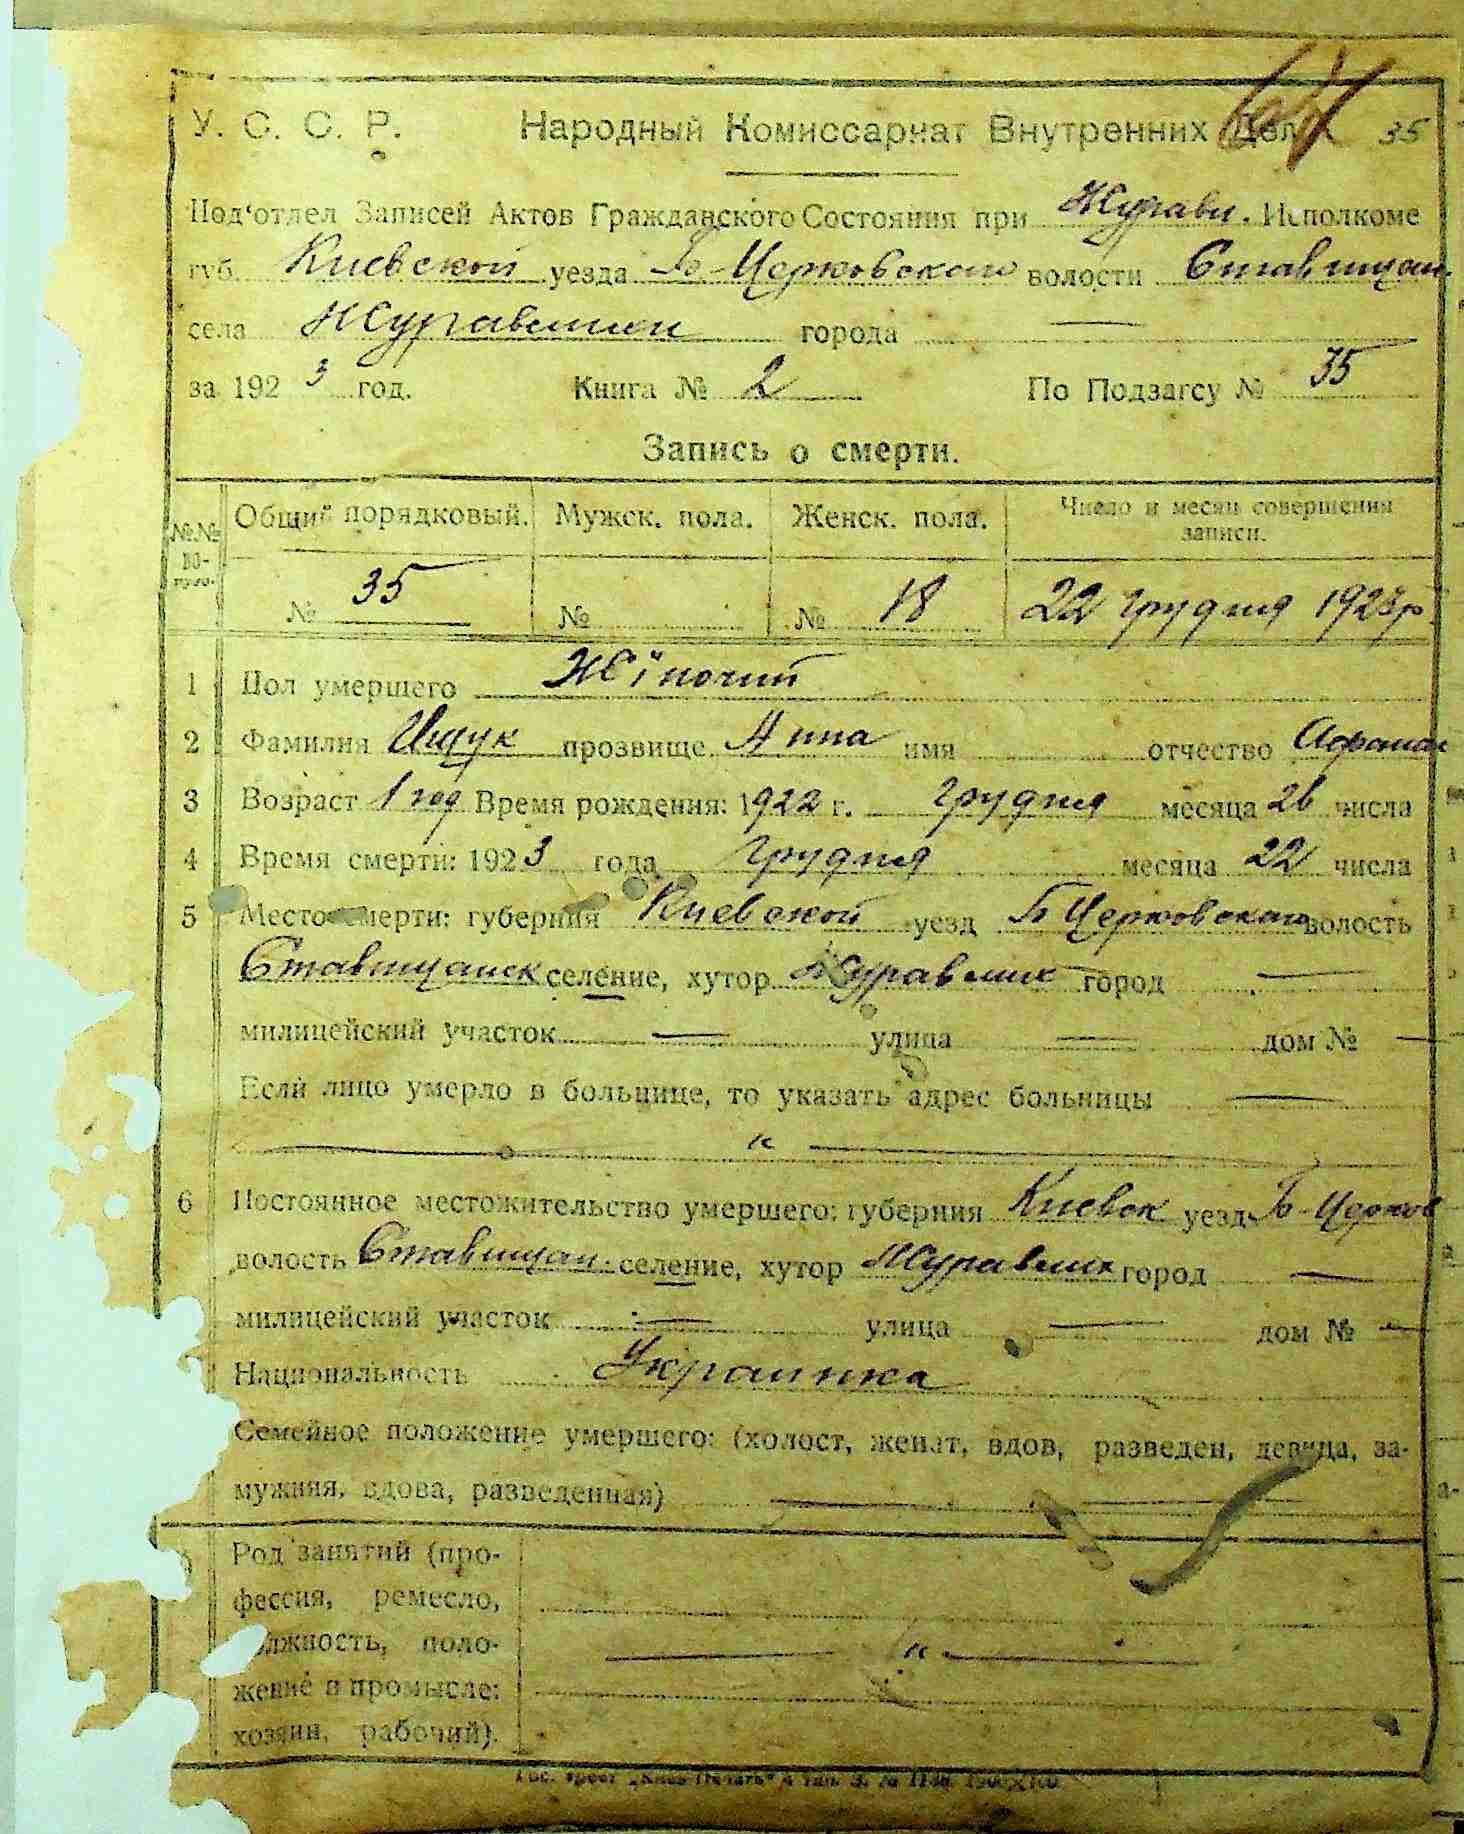 У. С. С. Р. Народный Комиссариат Внутренних Дел 35
Под'отдел Записей Актов Гражданского Состояния при Журавл. Исполкоме
губ. Киевской уезда Б-Церковского волости Ставищан.
села Журавлихи города —
за 1923 год. Книга № 2 По Подзагсу № 35
Запись о смерти.
Общий порядковый. Мужск. пола. Женск. пола. Число и месяц совершения
записи.
№ 35 № № 18 22 грудня 1923 р.
1 Пол умершего Жіночий
2 Фамилия Ищук прозвище Анна имя отчество Афанас
3 Возраст 1 год Время рождения: 1922 г. грудня месяца 26 числа
4 Время смерти: 1923 года грудня месяца 22 числа
5 Место смерти: губерния Киевской уезд Б Церковского волость
Ставищанск селение, хутор Журавлих город —
милицейский участок — улица — дом № —
Если лицо умерло в больнице, то указать адрес больницы —
— " —
6 Постоянное местожительство умершего: губерния Киевск уезд Б-Церков
волость Ставищан. селение, хутор Журавлих город —
милицейский участок — улица — дом № —
Национальность Украинка
Семейное положение умершего: (холост, женат, вдов, разведен, девица, за-
мужняя, вдова, разведенная) —
Род занятий (про-
фессия, ремесло,
должность, поло-
жение в промысле:
хозяин, рабочий). — " —